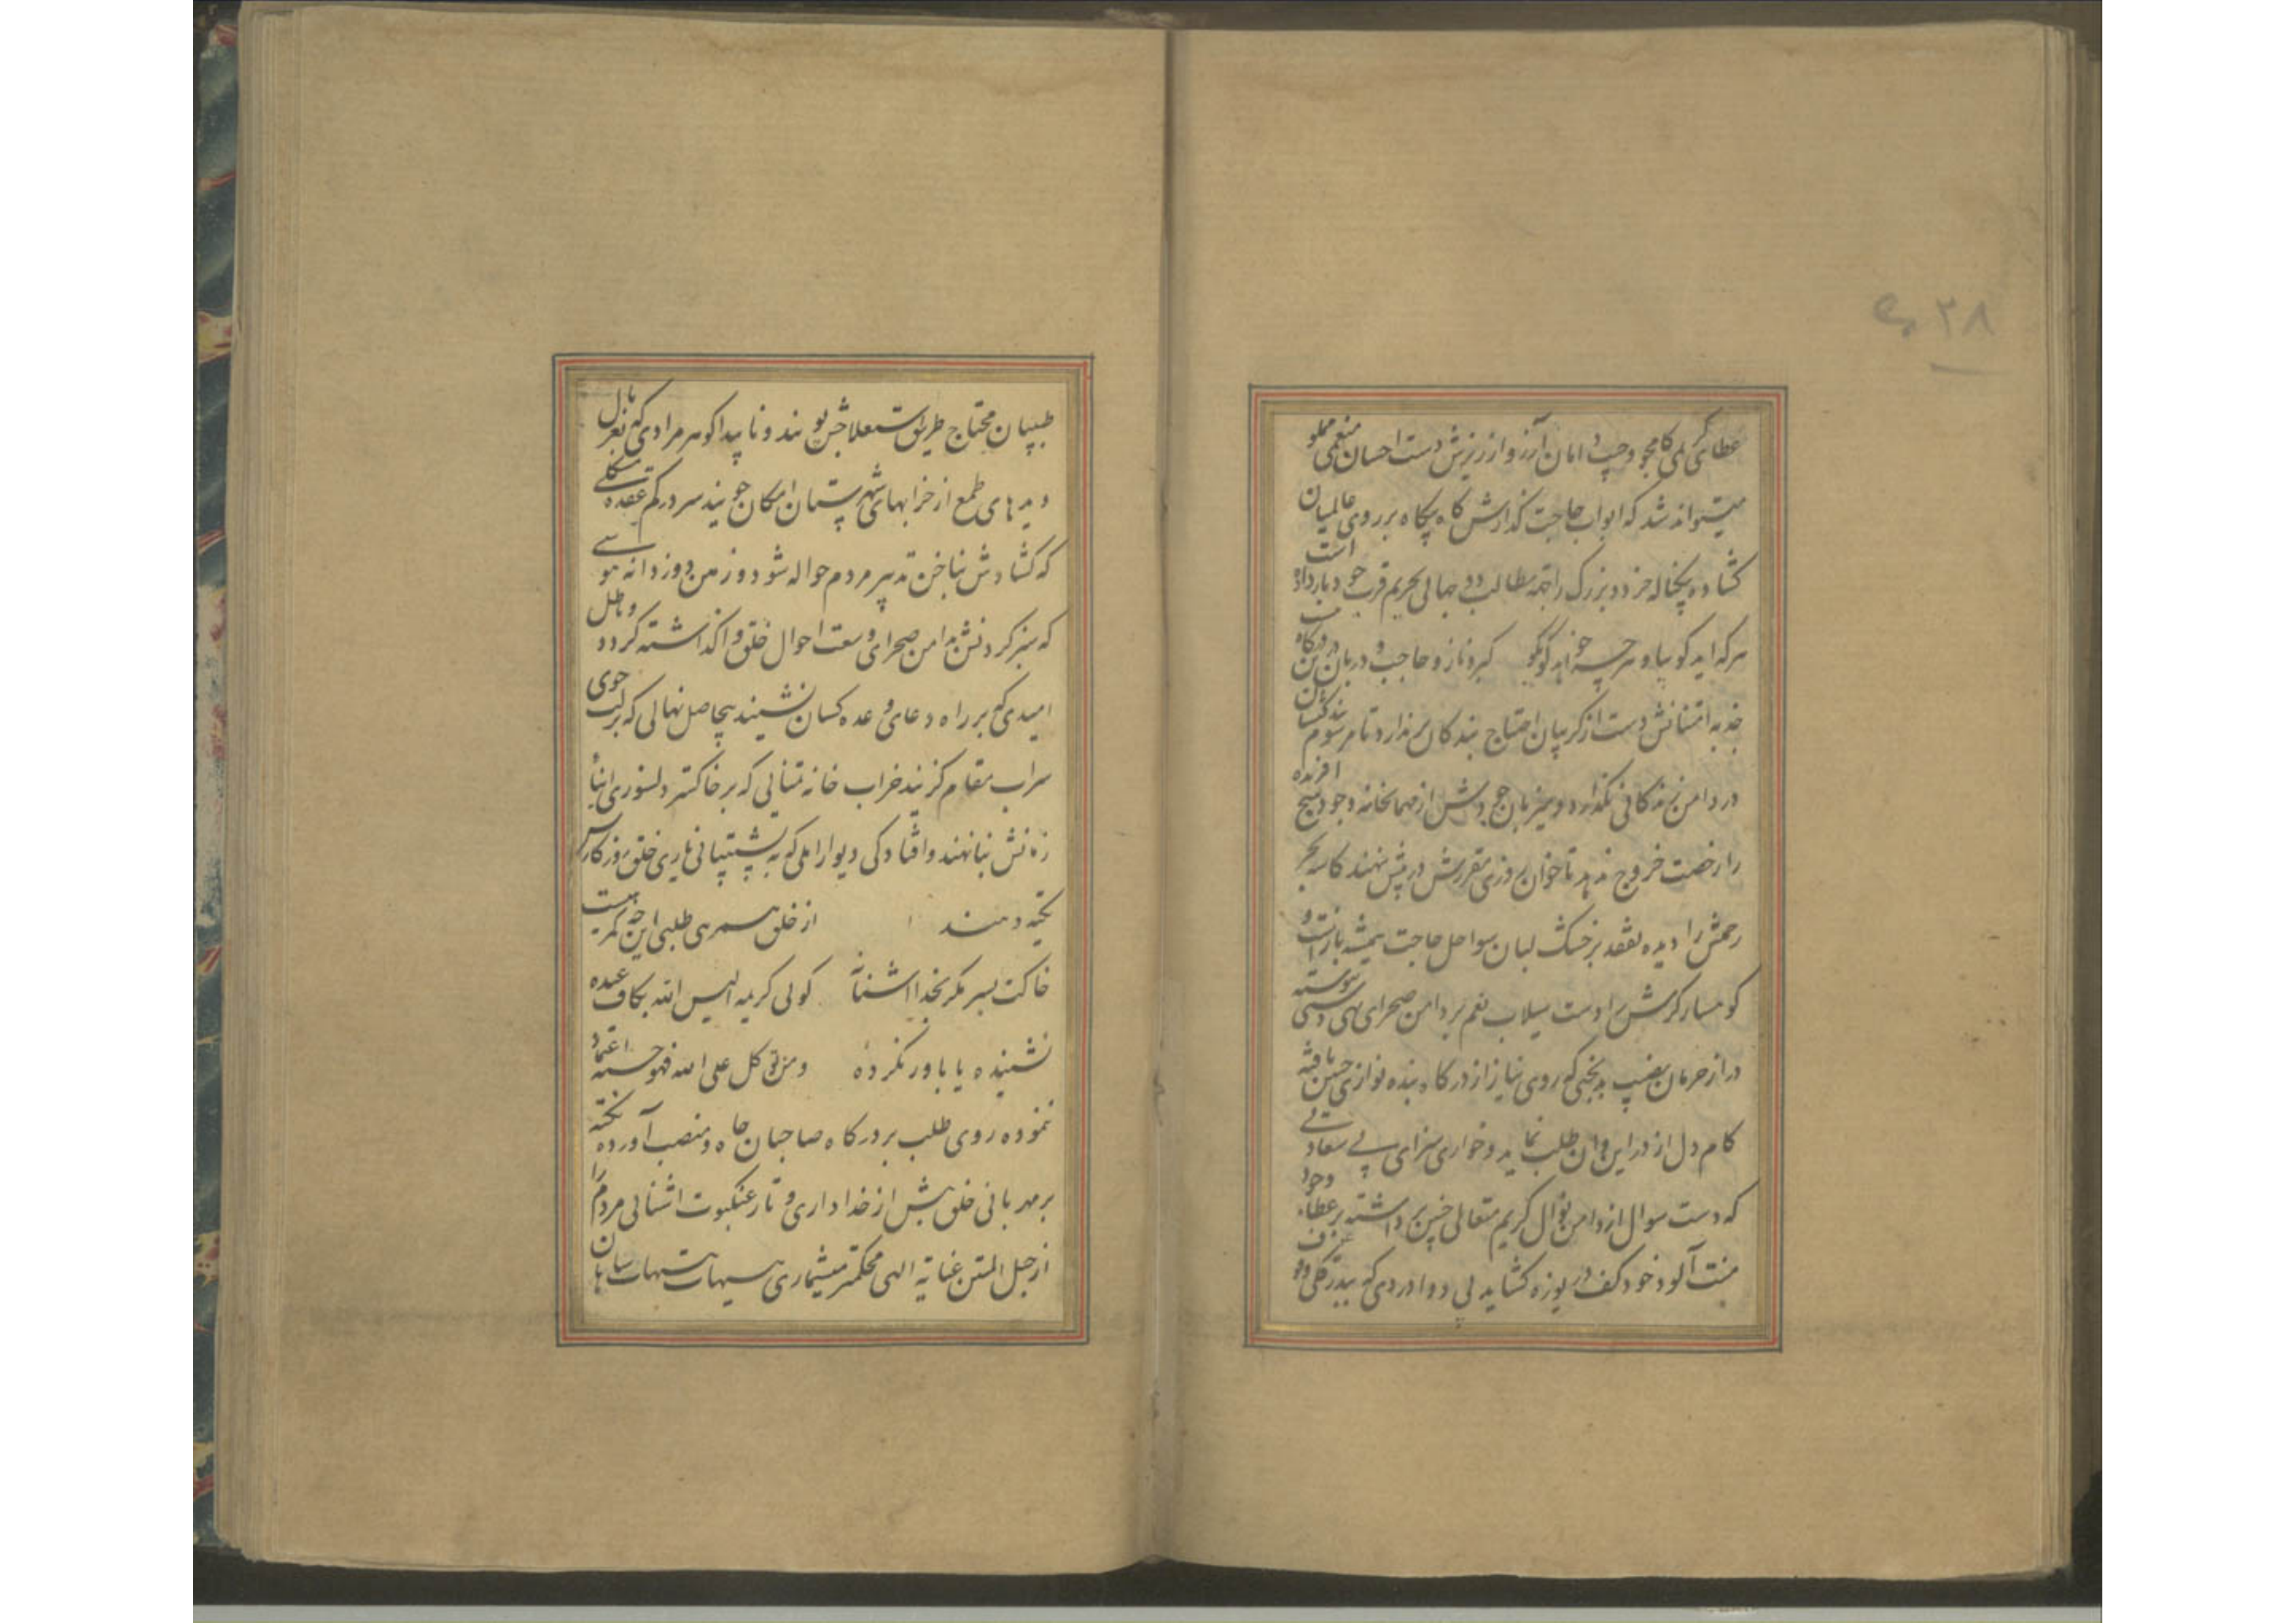 ۳۸
عطای کریمی کامجو و جیب دامان آرزو از ریزش دست احسان منعمی مملو
میتواند شد که ابواب حاجت گذارش گاه بیگاه بر روی عالمیان
گشاده است خرد و بزرگ را بجهة مطالب دو جهانی بحریم قرب خود بار داده
هر که اید گو بیا و هر چه خواهد گو بگو کبر و ناز و حاجب و دربان درین درگاه نیست
جذبه امتنانش دست از گریبان احتیاج بندگان برندارد تا مرسوم
در دامن زندگانی نگذارد و میزبان جودش از مهمانخانه وجود هیچ افریده
را رخصت خروج ندهد تا خوان روزی مقررش در پیش ننهند کاسه بحر
رحمتش را دیده تفقد بر خشک لبان سواحل حاجت همیشه بازست و
کوهسار کرمش را دست سیلاب نعم بر دامن صحرای تهی دستی پیوسته
دراز حرمان نصیب بدبختی که روی نیاز از درگاه بنده نوازی چنین تافته
کام دل از در این و ان طلب نماید و خواری سزای بی سعادتی
که دست سوال از دامن نوال کریم متعالی چنین برداشته بر عطاء
منت آلود خود کف دریوزه گشاید بی دوا دردی که
طبیبان محتاج طریق استعلاجش پویند و ناپیدا گوهر مرادی که
دیدهای طمع از خرابهای شهرستان امکان جویند سر در گم عقده مشکلی
که گشادش بناخن تدبیر مردم حواله شود و زمین دوز دانه هوسی
که سبز کردنش بدامن صحرای وسعت احوال خلق واگذاشته گردد و باطل
امیدی که بر راه دعای وعده کسان نشیند بیحاصل نهالی که بر لب جوی
سراب مقام گزیند خراب خانه تمنایی که بر خاکستر دلسوزی ابنا
زمانش بنا نهند و افتادگی دیوار املی که به پشتیبانی یاری خلق روزگارش
تکیه دهند از خلق همرهی طلبی این چه گمرهیست
خاکت بسر مگر بخدا اشنا نه گوئی کریمه الیس الله بکاف عبده
نشنیده یا باور نکرده و من توکل علی الله فهو حسبه اعتماد
ننموده روی طلب بر درگاه صاحبان جاه و منصب آورده تکیه
بر مهربانی خلق بیش از خدا داری و تار عنکبوت اشنائی مردم را
از حبل المتین عنایة الهی محکمتر میشماری هیهات هیهات